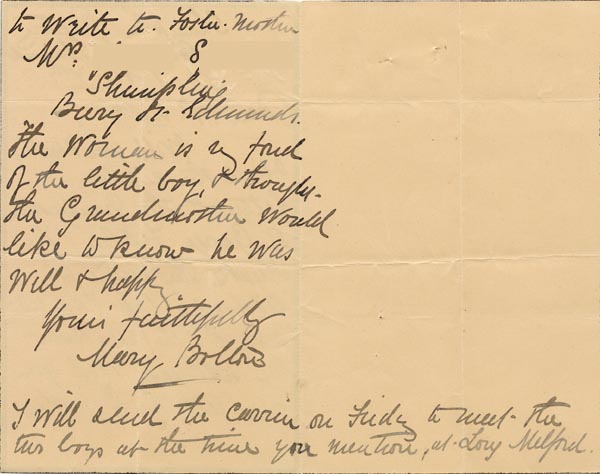 to write to. Foster-Mother
Mrs. S
"Shimpling
Bury St. Edmunds.
The Woman is vy fond
of the little boy, & thought
the Grandmother would
like to know he was
well & happy
Yours faithfully
Mary
I will send the carrier on Friday to meet the
two boys at the time you mention, at Long Melford.